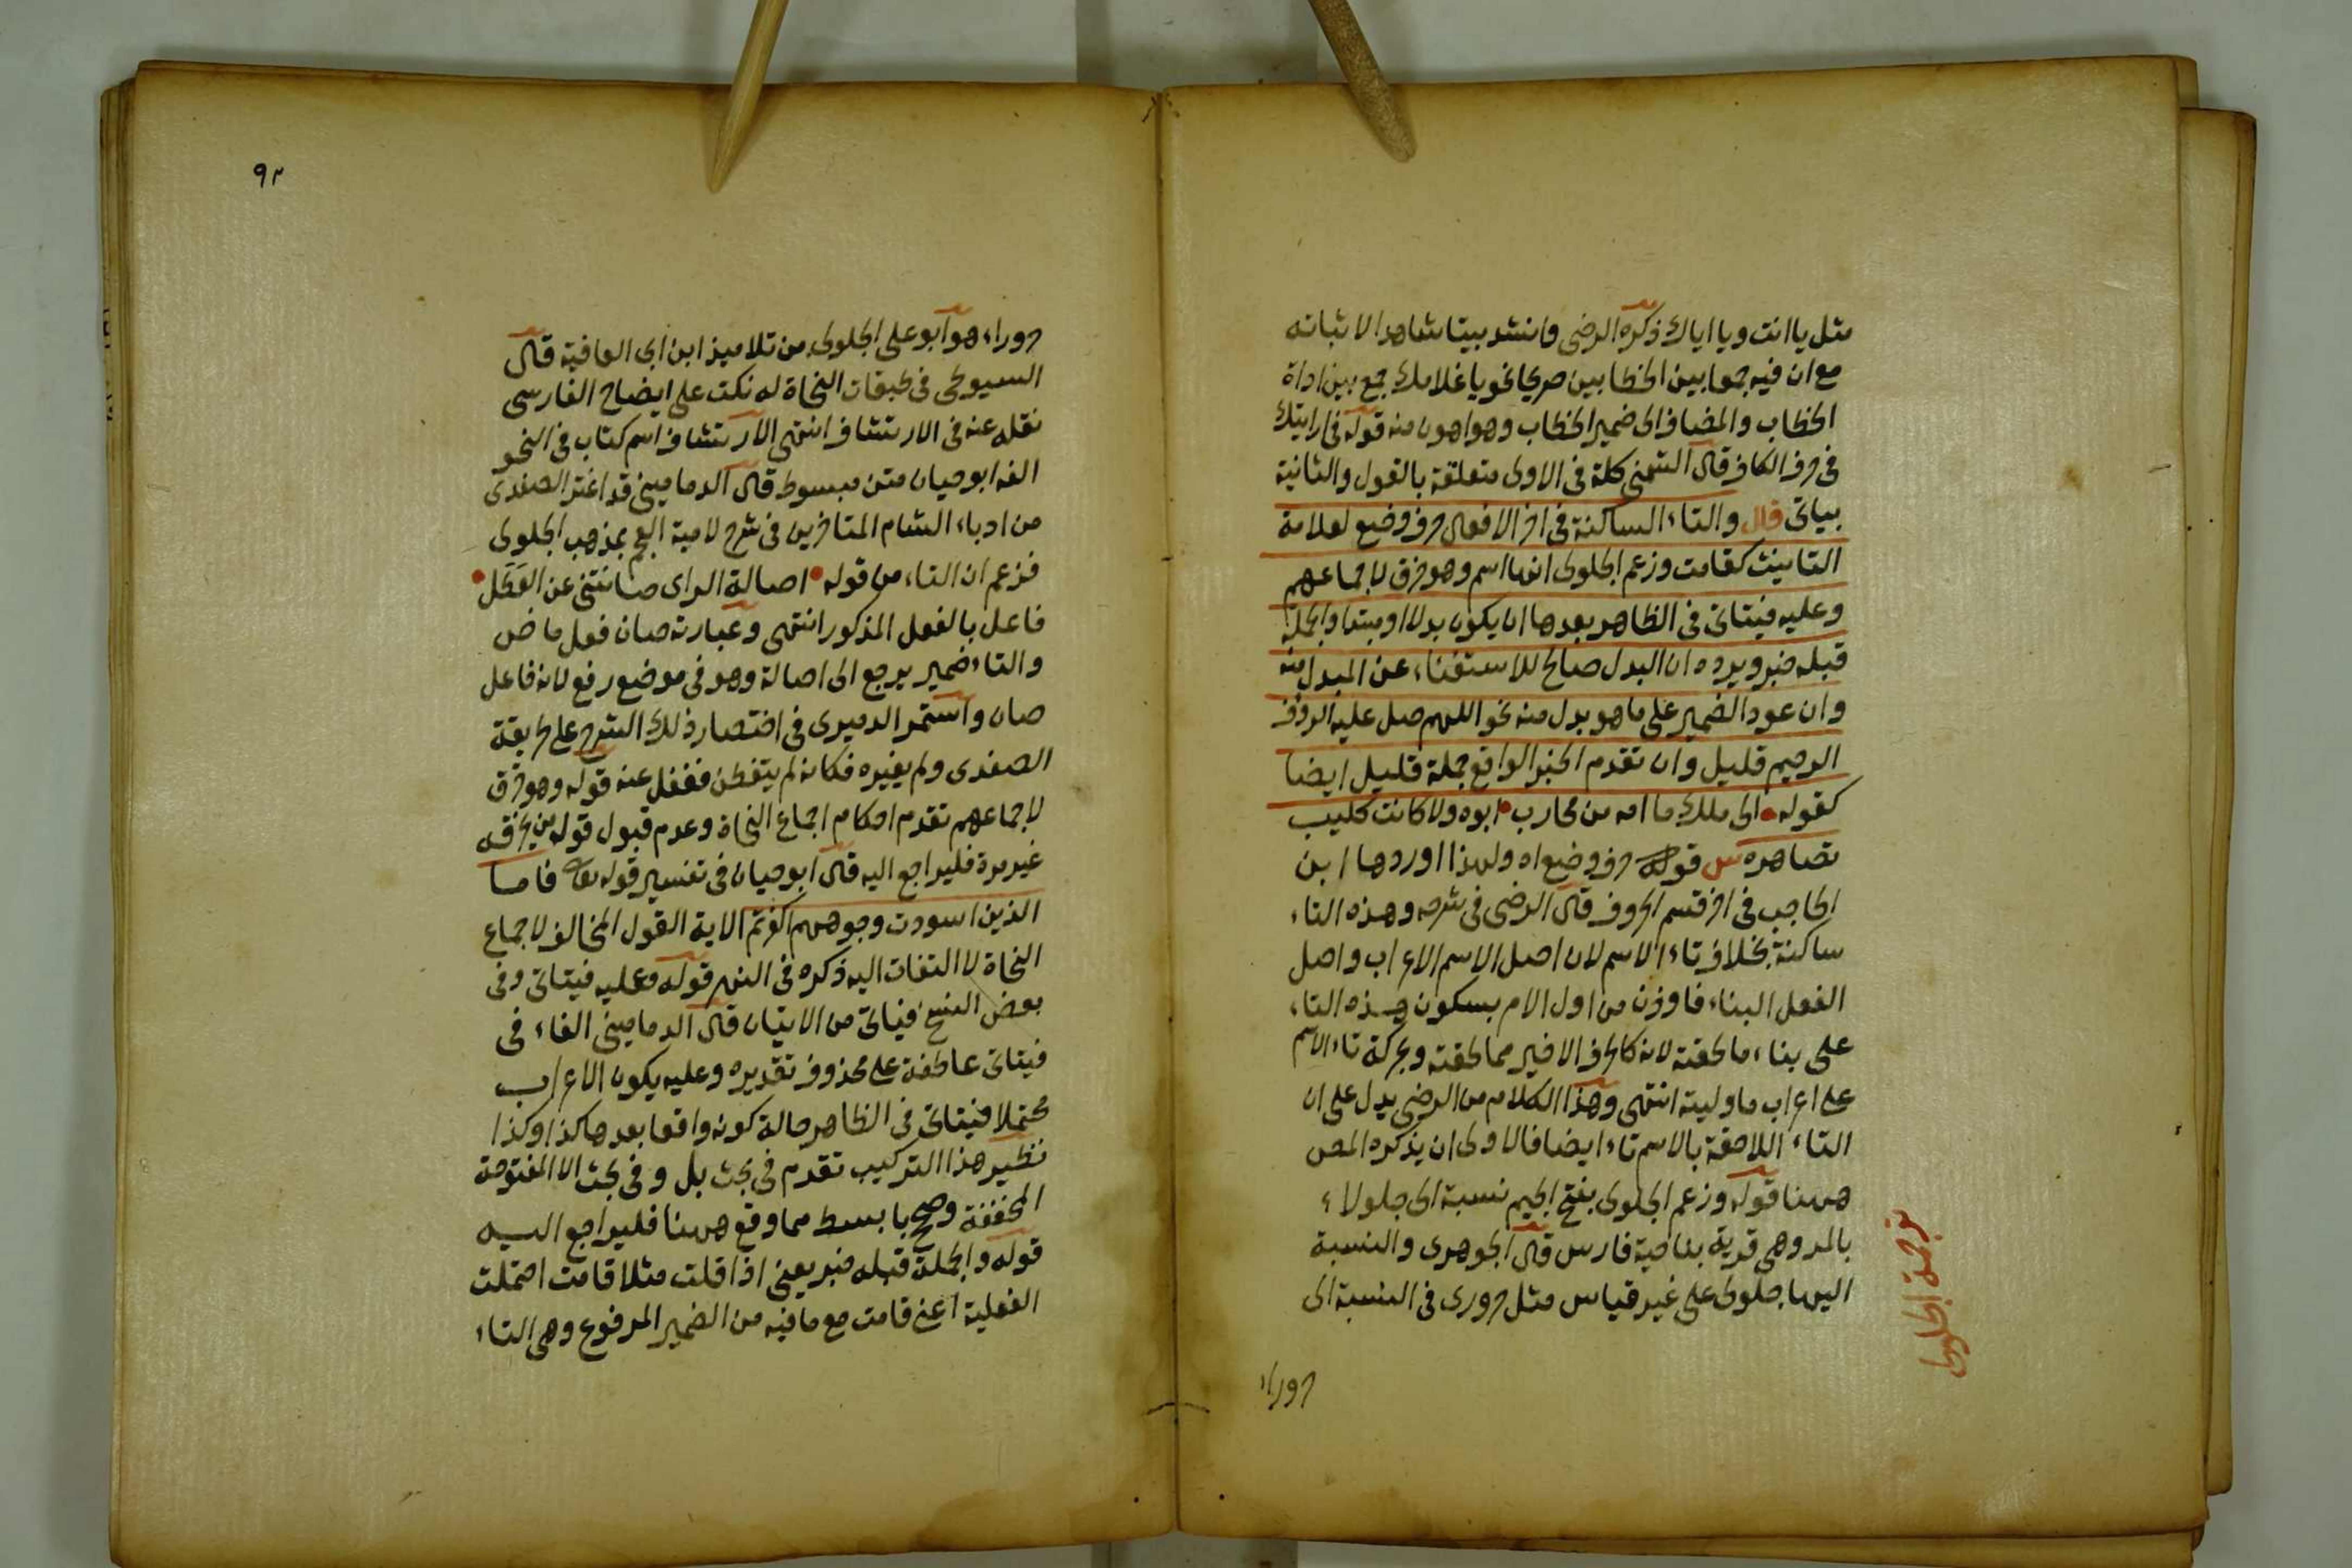 مثل يا انت ويا اياك ذكره الرضى وانشد بيتا شاهدا لاثباته
مع ان فيه جمعا بين الخطابين صريحا نحو يا غلامك جمع بين اداة
الخطاب والمضاف الى ضمير الخطاب وهو اهون منه قوله فى ارايتك
فى حرف الكاف قال الشمنى كلمة فى الاولى متعلقة بالقول والثانية
بياتى قال والتاء الساكنة فى اخر الافعال حرف وضع لعلامة
التانيث كقامت وزعم الجلولى انها اسم وهو خرق لاجماعهم
وعليه فيتاتى فى الظاهر بعدها ان يكون بدلا او مبتدا والجملة
قبله خبر ويرده ان البدل صالح للاستغناء عن المبدل منه
وان عود الضمير على ما هو بدل منه نحو اللهم صل عليه الرؤف
الرحيم قليل وان تقدم الخبر الواقع جملة قليل ايضا
كقوله الى ملك ما امه من محارب ابوه ولا كانت كليب
تصاهره ش قوله حرف وضع اه ولهذا اوردها ابن
الحاجب فى اخر قسم الحروف قال الرضى فى شرحه وهذه التاء
ساكنة بخلاف تاء الاسم لان اصل الاسم الاعراب واصل
الفعل البناء فاوذن من اول الامر بسكون هذه التاء
على بناء ما لحقته لانه كالحرف الاخير مما لحقته وبحركة تاء الاسم
على اعراب ما وليته انتهى وهذا الكلام من الرضى يدل على ان
التاء اللاحقة بالاسم تاء ايضا فالاولى ان يذكره المص
ههنا قوله وزعم الجلولى بفتح الجيم نسبة الى جلولاء
بالمد وهى قرية بناحية فارس قال الجوهرى والنسبة
اليها جلولى على غير قياس مثل حرورى فى النسبة الى
حروراء
ترجمة الجلولى
٩٢
حروراء هو ابو على الجلولى من تلاميذ ابن ابى العافية قال
السيوطى فى طبقات النحاة له نكت على ايضاح الفارسى
نقله عنه فى الارتشاف انتهى الارتشاف اسم كتاب فى النحو
الفه ابو حيان متن مبسوط قال الدمامينى قد اغتر الصفدى
من ادباء الشام المتاخرين فى شرح لامية العجم بمذهب الجلولى
فزعم ان التاء من قوله اصالة الراى صانتنى عن الخطل
فاعل بالفعل المذكور انتهى وعبارته صان فعل ماض
والتاء ضمير يرجع الى اصالة وهو فى موضع رفع لانه فاعل
صان واستمر الدميرى فى اختصار ذلك الشرح على طريقة
الصفدى ولم يغيره فكانه لم يتفطن فغفل عنه قوله وهو خرق
لاجماعهم تقدم احكام اجماع النحاة وعدم قبول قوله من يخرقه
غير مرة فليراجع اليه قال ابو حيان فى تفسير قوله تعالى فاما
الذين اسودت وجوههم اكفرتم الاية القول المخالف لاجماع
النحاة لا التفات اليه ذكره فى النهر قوله وعليه فيتاتى وفى
بعض النسخ فياتى من الاتيان قال الدمامينى الفاء فى
فيتاتى عاطفة على محذوف تقديره وعليه يكون الاعراب
محتملا فيتاتى فى الظاهر حالة كونه واقعا بعدها كذا وكذا
نظير هذا التركيب تقدم فى بحث بل وفى بحث الا المفتوحة
المخففة وضح بابسط مما وقع ههنا فليراجع اليه
قوله والجملة قبله خبر يعنى اذا قلت مثلا قامت احتملت
الفعلية اعنى قامت مع ما فيه من الضمير المرفوع وهى التاء